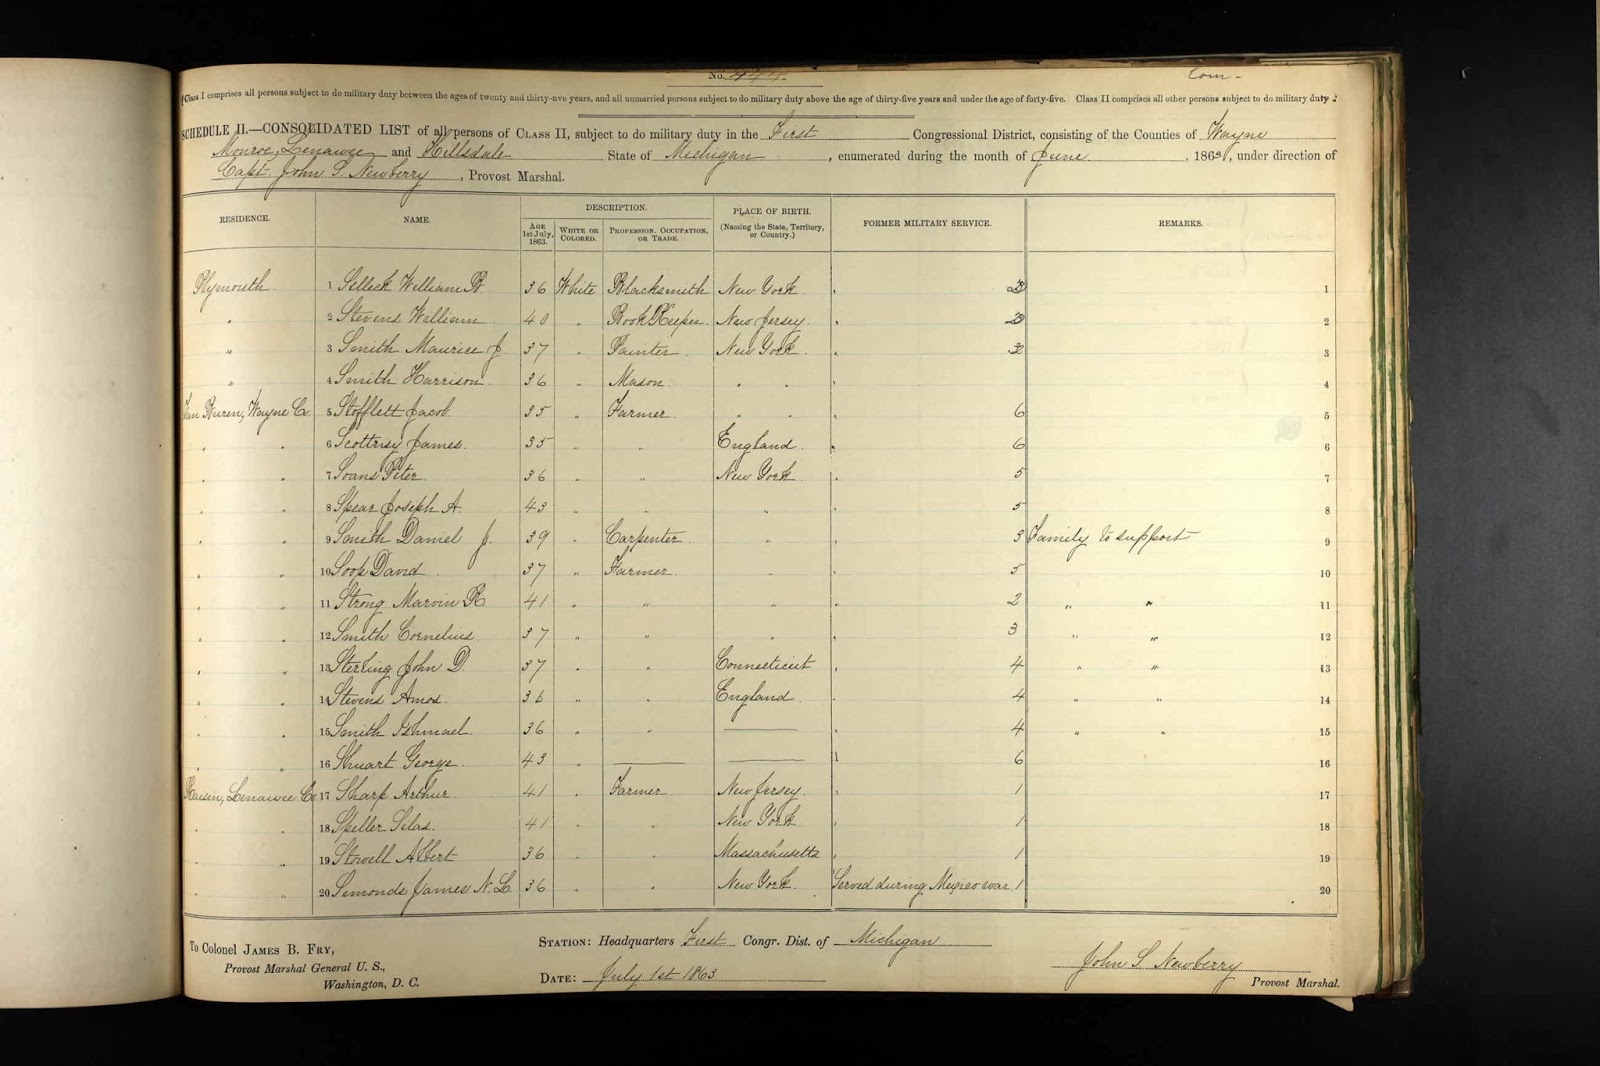 No. 444 Com-
Class I comprises all persons subject to do military duty between the ages of twenty and thirty-five years, and all unmarried persons subject to do military duty above the age of thirty-five years and under the age of forty-five. Class II comprises all other persons subject to do military duty.
SCHEDULE II.—CONSOLIDATED LIST of all persons of CLASS II, subject to do military duty in the First Congressional District, consisting of the Counties of Wayne
Monroe, Lenawee and Hillsdale State of Michigan, enumerated during the month of June, 1863, under direction of
Capt. John S. Newberry, Provost Marshal.
RESIDENCE. NAME. DESCRIPTION. PLACE OF BIRTH. FORMER MILITARY SERVICE. REMARKS.
AGE 1st July, 1863. WHITE OR COLORED. PROFESSION, OCCUPATION, OR TRADE. (Naming the State, Territory, or Country.)
Plymouth 1 Selleck William 36 White Blacksmith New York 1
" 2 Stevens William 40 " Book Keeper New Jersey 2
" 3 Smith Maurice J. 37 " Painter New York 3
" 4 Smith Harrison 36 " Mason " " 4
Van Buren, Wayne Co. 5 Stofflett Jacob 35 " Farmer " " 6 5
" " 6 James 35 " " England 6 6
" " 7 Soans Peter 36 " " New York 5 7
" " 8 Spear Joseph A. 43 " " " 5 8
" " 9 Smith Daniel J. 39 " Carpenter " 3 Family to support 9
" " 10 Soop David 37 " Farmer " 5 10
" " 11 Strong Marvin R 41 " " " 2 " " 11
" " 12 Smith Cornelius 37 " " " 3 " " 12
" " 13 Sterling John D. 37 " " Connecticut 4 " " 13
" " 14 Stevens Amos 36 " " England 4 " " 14
" " 15 Smith Ishmael 36 " " — 4 " " 15
" " 16 Stuart George 43 " — — 6 16
Raisin, Lenawee Co 17 Sharp Arthur 41 " Farmer New Jersey 1 17
" " 18 Speller Silas 41 " " New York 1 18
" " 19 Stowell Albert 36 " " Massachusetts 1 19
" " 20 Simonds James N. L. 36 " " New York Served during Mexico war 1 20
To Colonel JAMES B. FRY,
Provost Marshal General U. S.,
Washington, D. C.
STATION: Headquarters First Congr. Dist. of Michigan
DATE: July 1st 1863
John S Newberry
Provost Marshal.